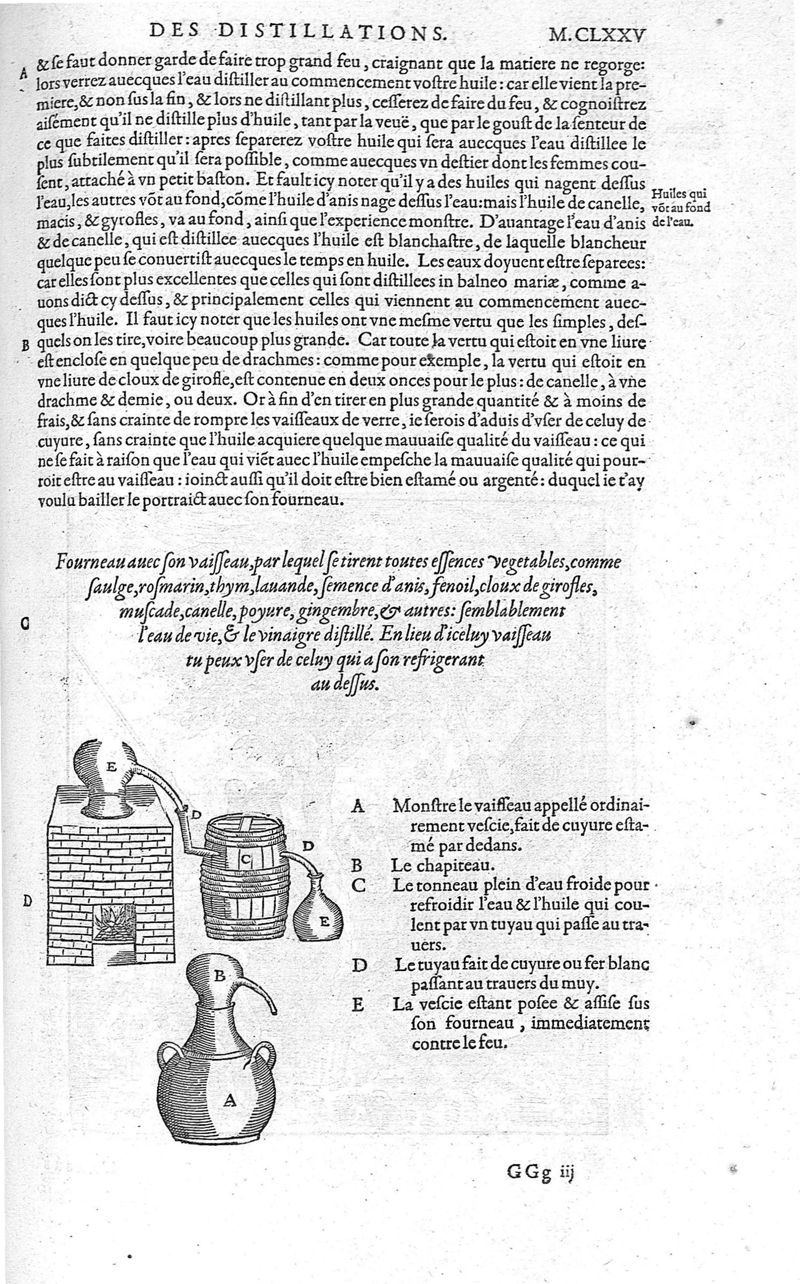 DES DISTILLATIONS. M.CLXXV
A
& ſe faut donner garde de faire trop grand feu, craignant que la matiere ne regorge:
lors verrez auecques l'eau diſtiller au commencement voſtre huile: car elle vient la pre-
miere, & non ſus la fin, & lors ne diſtillant plus, ceſſerez de faire du feu, & cognoiſtrez
aiſément qu'il ne diſtille plus d'huile, tant par la veuë, que par le gouſt de la ſenteur de
ce que faites diſtiller: apres ſeparerez voſtre huile qui ſera auecques l'eau diſtillee le
plus ſubtilement qu'il ſera poſſible, comme auecques vn deſtier dont les femmes cou-
ſent, attaché à vn petit baſton. Et fault icy noter qu'il y a des huiles qui nagent deſſus
l'eau, les autres võt au fond, cõme l'huile d'anis nage deſſus l'eau: mais l'huile de canelle,
macis, & gyrofles, va au fond, ainſi que l'experience monſtre. D'auantage l'eau d'anis
& de canelle, qui eſt diſtillee auecques l'huile eſt blanchaſtre, de laquelle blancheur
quelque peu ſe conuertiſt auecques le temps en huile. Les eaux doyuent eſtre ſeparees:
car elles ſont plus excellentes que celles qui ſont diſtillees in balneo mariæ, comme a-
uons dict cy deſſus, & principalement celles qui viennent au commencement auec-
ques l'huile. Il faut icy noter que les huiles ont vne meſme vertu que les ſimples, deſ-
quels on les tire, voire beaucoup plus grande. Car toute la vertu qui eſtoit en vne liure
eſt encloſe en quelque peu de drachmes: comme pour exemple, la vertu qui eſtoit en
vne liure de cloux de girofle, eſt contenue en deux onces pour le plus: de canelle, à vne
drachme & demie, ou deux. Or à fin d'en tirer en plus grande quantité & à moins de
frais, & ſans crainte de rompre les vaiſſeaux de verre, ie ſerois d'aduis d'vſer de celuy de
cuyure, ſans crainte que l'huile acquiere quelque mauuaiſe qualité du vaiſſeau: ce qui
ne ſe fait à raiſon que l'eau qui viẽt auec l'huile empeſche la mauuaiſe qualité qui pour-
roit eſtre au vaiſſeau: ioinct auſſi qu'il doit eſtre bien eſtamé ou argenté: duquel ie t'ay
voulu bailler le portraict auec ſon fourneau.
Huiles qui
võt au fond
de l'eau.
B
Fourneau auec ſon vaiſſeau, par lequel ſe tirent toutes eſſences vegetables, comme
ſaulge, roſmarin, thym, lauande, ſemence d'anis, fenoil, cloux de girofles,
muſcade, canelle, poyure, gingembre, & autres: ſemblablement
l'eau de vie, & le vinaigre diſtillé. En lieu d'iceluy vaiſſeau
tu peux vſer de celuy qui a ſon refrigerant
au deſſus.
C
E
D
C
D
E
D
B
A
A Monſtre le vaiſſeau appellé ordinai-
rement veſcie, fait de cuyure eſta-
mé par dedans.
B Le chapiteau.
C Le tonneau plein d'eau froide pour
refroidir l'eau & l'huile qui cou-
lent par vn tuyau qui paſſe au tra-
uers.
D Le tuyau fait de cuyure ou fer blanc
paſſant au trauers du muy.
E La veſcie eſtant poſee & aſſiſe ſus
ſon fourneau, immediatement
contre le feu.
GGg iij